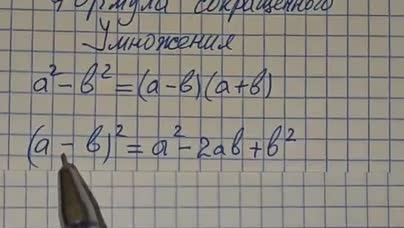 Формула сокращенного
Умножения
a² - b² = (a - b)(a + b)
(a - b)² = a² - 2ab + b²